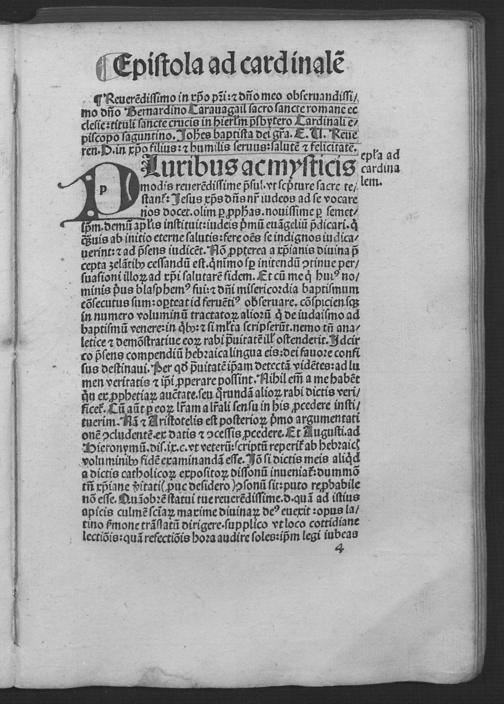 Epistola ad cardinalē
¶ Reuerēdissimo in xp̄o pr̄i: ⁊ dn̄o meo obseruandissi/
mo dn̄o Bernardino Carauagail sacro sancte romane ec
clesie: tituli sancte crucis in hierłm p̄sbytero Cardinali e/
piscopo saguntino. Joh̄es baptista dei gr̄a. E. U. Reue
ren. D. in xp̄o filius: ⁊ humilis seruus: salutē ⁊ felicitatē.
epl̄a ad
cardina
lem.
PLuribus ac mysticis
modis reuerēdissime p̄sul. vt scp̄ture sacre te/
stant̄: Jesus xp̄s dn̄s nr̄ iudeos ad se vocare
nos docet. olim ꝑ ꝓphas. nouissime ꝑ semet/
ip̄m. demū apl̄is instituit: iudeis p̄mū euāgeliū p̄dicari. q̄
q̄uis ab initio eterne salutis: fere oēs se indignos iudica/
uerint: ⁊ ad p̄sens iudicēt. Nō ꝓpterea a xp̄ianis diuina p̄
cepta zelātib9 cessandū est. q̄nimo sꝑ intendū ꝓtinue per/
suasioni illoꝝ ad xp̄i salutarē fidem. Et cū me q̄ hui9 no/
minis p̄us blasphem9 fui: ⁊ dn̄i misericordia baptismum
cōsecutus sum: oꝑteat id feruēti9 obseruare. cōspiciensqꝫ
in numero voluminū tractatoꝝ alioꝝ q̄ de iudaismo ad
baptismū venere: in qb9: ⁊ si ml̄ta scripserūt. nemo tn̄ ana/
letice ⁊ demōstratiue eoꝝ rabi p̄uitatē ill̄ ostenderit. Jdcir
co p̄sens compendiū hebraica lingua eis: dei fauore confi
sus destinaui. Per qd̄ p̄uitatē ip̄am detectā vidētes: ad lu
men veritatis ⁊ ip̄i ꝓperare possint. Nihil em̄ a me habēt
q̄ ex ꝓphetiaꝝ auctate. seu q̄rundā alioꝝ rabi dictis veri/
ficet̄. Cū aūt ꝑ eoꝝ lr̄am a lr̄ali sensu in his ꝓcedere insti/
tuerim. Nā ⁊ Aristotelis est posterioꝝ p̄mo argumentati
onē ꝯcludentē. ex datis ⁊ ꝯcessis ꝓcedere. Et Augusti. ad
Hieronymū. dis. ix. c. vt veterū: scriptū reperit̄ ab hebraic̄
voluminib9 fidē examinandā esse. Jō si dictis meis aliqd̄
a dictis catholicoꝝ expositoꝝ dissonū inueniat̄: dummō
tn̄ xp̄iane v̄itati (ꝓuc desidero) ꝯsonū sit: puto rep̄babile
nō esse. Quāobrē statui tue reuerēdissime. d. quā ad istius
apicis culmē sciaꝝ maxime diuinaꝝ de9 euexit: opus la/
tino s̄mone trāslatū dirigere. supplico vt loco cottidiane
lectiōis: quā refectiōis hora audire soles: ip̄m legi iubeas
4